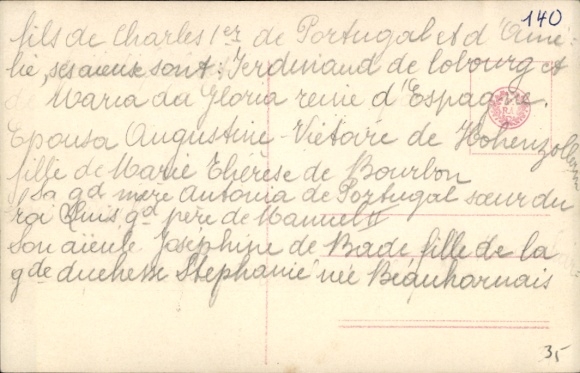 140
fils de Charles 1er de Portugal et d'Amé-
lie, ses aieux sont: Ferdinand de Cobourg et
de Maria da Gloria reine d'Espagne.
Epousa Augustine-Victoire de Hohenzollern
fille de Marie Thérèse de Bourbon
sa gd mère Antonia de Portugal sœur du
roi Luis gd père de Manuel II
Son aïeule Joséphine de Bade fille de la
gde duchesse Stephanie née Beauharnais
35